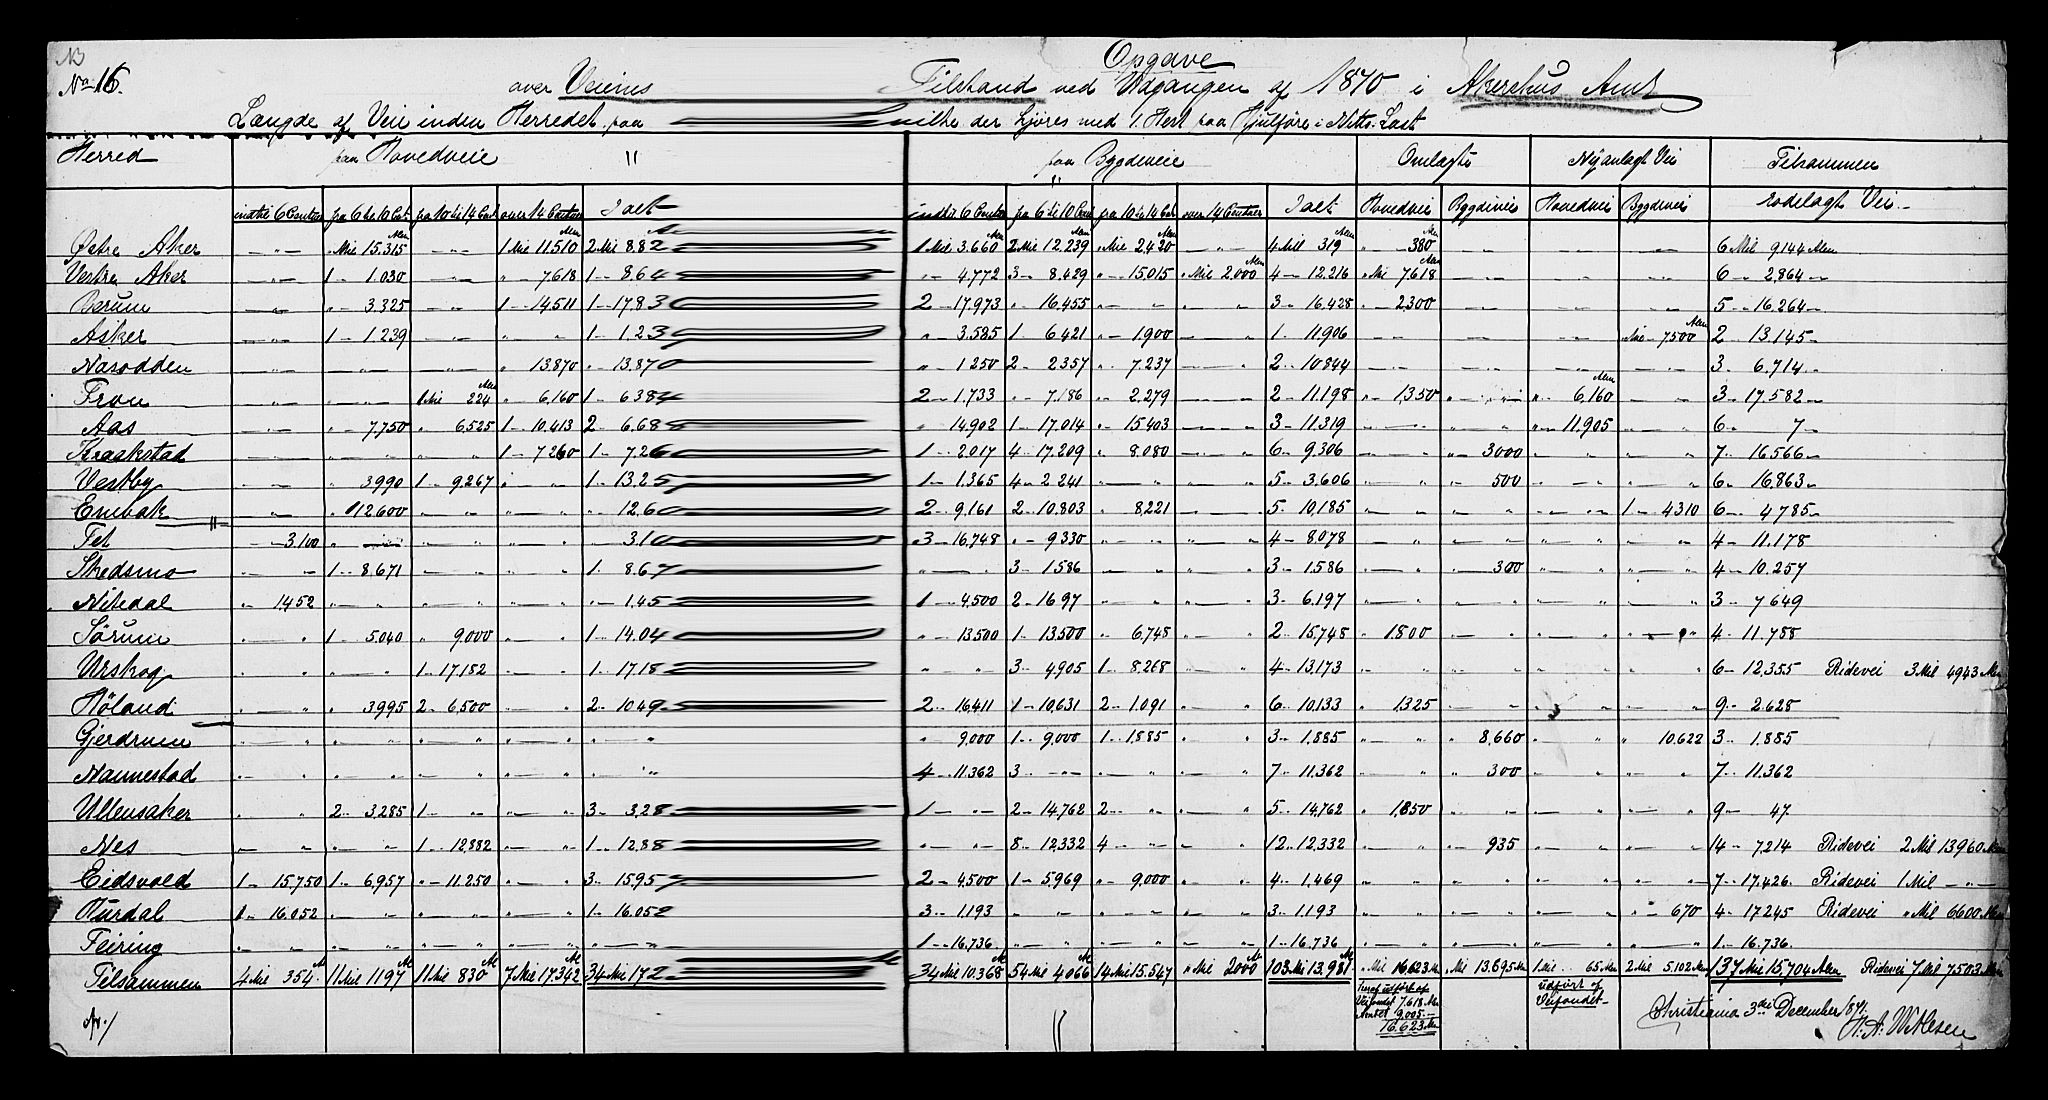 No 16.
Opgave
over Veienes Tilstand ved Udgangen af 1870 i Akershus Amt
Længde af Vei inden Herredet paa hvilke der kjøres med 1 Hest paa Hjulföre i Netto Last
Herred | paa Hovedveie | paa Bygdeveie | Omlagte | Nyanlagt Vei | Tilsammen
indtil 6 Centner | fra 6 til 10 Cent | fra 10 til 14 Cent | over 14 Centner | Ialt | indtil 6 Centner | fra 6 til 10 Cent | fra 10 til 14 Cent | over 14 Centner | Ialt | Hovedvei | Bygdevei | Hovedvei | Bygdevei | rodelagt Vei
Østre Aker | " | " Mil 15.315 Alen | " | 1 Mil 11.510 Alen | 2 Mil 8.82 | 1 Mil 3.660 Alen | 2 Mil 12.239 Alen | " Mil 2.420 Alen | " | 4 Mil 319 Alen | " 380 Alen | " | " | " | 6 Mil 9144 Alen
Vestre Aker | " | 1 " 1.030 | " | " 7.618 | 1 " 8.64 | " 4.772 | 3 " 8.429 | " 15.015 | " Mil 2.000 Alen | 4 " 12.216 | " Mil 7.618 Alen | " | " | " | 6 " 2.864
Bærum | " | " 3.325 | " | 1 " 14.511 | 1 " 17.83 | 2 " 17.973 | " 16.455 | " | " | 3 " 16.428 | " 2.300 | " | " | " | 5 " 16.264
Asker | " | 1 " 1.239 | " | " | 1 " 1.23 | " 3.585 | 1 " 6.421 | " 1.900 | " | 1 " 11.906 | " | " | " | " Mil 7500 Alen | 2 " 13.145
Næsodden | " | " | " | " 13.870 | " 13.870 | " 1250 | 2 " 2357 | " 7.237 | " | 2 " 10844 | " | " | " | " | 3 " 6.714
Fron | " | " | 1 Mil 224 Alen | " 6.160 | 1 " 6384 | 2 " 1.733 | " 7.186 | " 2.279 | " | 2 " 11.198 | " 1.350 | " | " 6.160 Alen | " | 3 " 17.582
Aas | " | " 7.750 | " 6.525 | 1 " 10.413 | 2 " 6.68 | " 14.902 | 1 " 17.014 | " 15.403 | " | 3 " 11.319 | " | " | " 11.905 | " | 6 " 7
Kraakstad | " | " | " | 1 " 7260 | 1 " 7.26 | 1 " 2.017 | 4 " 17.209 | " 8.080 | " | 6 " 9.306 | " | " 3000 | " | " | 7 " 16.566
Vestby | " | " 3990 | 1 " 9.267 | " | 1 " 13.25 | 1 " 1.365 | 4 " 2.241 | " | " | 5 " 3.606 | " | " 500 | " | " | 6 " 16.863
Enebak | " | " 12600 | " | " | " 12.60 | 2 " 9.161 | 2 " 10.803 | " 8.221 | " | 5 " 10.185 | " | " | " | 1 " 4310 | 6 " 4785
Fet | " 3.100 | " | " | " | " 310 | 3 " 16.748 | " 9.330 | " | " | 4 " 8.078 | " | " | " | " | 4 " 11.178
Skedsmo | " | 1 " 8.671 | " | " | 1 " 8.67 | " | 3 " 1.586 | " | " | 3 " 1.586 | " | " 300 | " | " | 4 " 10.257
Nitedal | " 1452 | " | " | " | " 1.45 | 1 " 4.500 | 2 " 1697 | " | " | 3 " 6.197 | " | " | " | " | 3 " 7.649
Sørum | " | 1 " 5.040 | " 9.000 | " | 1 " 14.04 | " 13.500 | 1 " 13.500 | " 6.748 | " | 2 " 15.748 | " 1.800 | " | " | " | 4 " 11.788
Urskog | " | " | 1 " 17.182 | " | 1 " 17.18 | " | 3 " 4.905 | 1 " 8.268 | " | 4 " 13.173 | " | " | " | " | 6 " 12.355 Ridevei 3 Mil 4943 Alen
Høland | " | " 3995 | 2 " 6.500 | " | 2 " 1049 | 2 " 16.411 | 1 " 10.631 | 2 " 1.091 | " | 6 " 10.133 | " 1.325 | " | " | " | 9 " 2.628
Gjerdrum | " | " | " | " | " | " 9.000 | 1 " 9.000 | 1 " 1.885 | " | 3 " 1.885 | " | " 8.660 | " | " 10.622 | 3 " 1.885
Nannestad | " | " | " | " | " | 4 " 11.362 | 3 " | " | " | 7 " 11.362 | " | " 300 | " | " | 7 " 11.362
Ullensaker | " | 2 " 3.285 | 1 " | " | 3 " 3.28 | 1 " | 2 " 14.762 | 2 " | " | 5 " 14.762 | " 1.850 | " | " | " | 9 " 47
Nes | " | " | 1 " 12.882 | " | 1 " 12.88 | " | 8 " 12.332 | 4 " | " | 12 " 12.332 | " | " 935 | " | " | 14 " 7214 Ridevei 2 Mil 13960 Alen
Eidsvold | 1 " 15.750 | 1 " 6.957 | " 11.250 | " | 3 " 15.95 | 2 " 4.500 | 1 " 5.969 | " 9.000 | " | 4 " 1.469 | " | " | " | " | 7 " 17.426 Ridevei 1 Mil "
Hurdal | 1 " 16.052 | " | " | " | 1 " 16.052 | 3 " 1.193 | " | " | " | 3 " 1.193 | " | " | " | " 670 | 4 " 17.245 Ridevei " Mil 6600 Alen
Feiring | " | " | " | " | " | 1 " 16.736 | " | " | " | 1 " 16.736 | " | " | " | " | 1 " 16.736
Tilsammen | 4 Mil 354 A | 11 Mil 1197 A | 11 Mil 830 A | 7 Mil 17.342 A | 34 Mil 172 | 34 Mil 10.368 A | 54 Mil 4.066 A | 14 Mil 15.547 | " Mil 2000 A | 103 Mil 13.981 A | " Mil 16.623 Al | " Mil 13.695 Alen | 1 Mil 65 Alen | 2 Mil 5.102 Alen | 137 Mil 15.704 Alen Ridevei 7 Mil 7503 Alen
heraf udført af
Veifondet 7.618 Al
Amtet 9.005
16.623 Al
udført af
Veifondet
Christiania 3die December 1871.